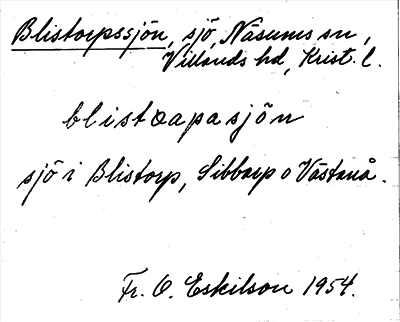 Blistorpssjön, sjö, Näsums sn,
Villands hd, Krist. l.
blistoapasjön
sjö i Blistorp, Sibbarp o Västanå.
Fr. O. Eskilson 1954.